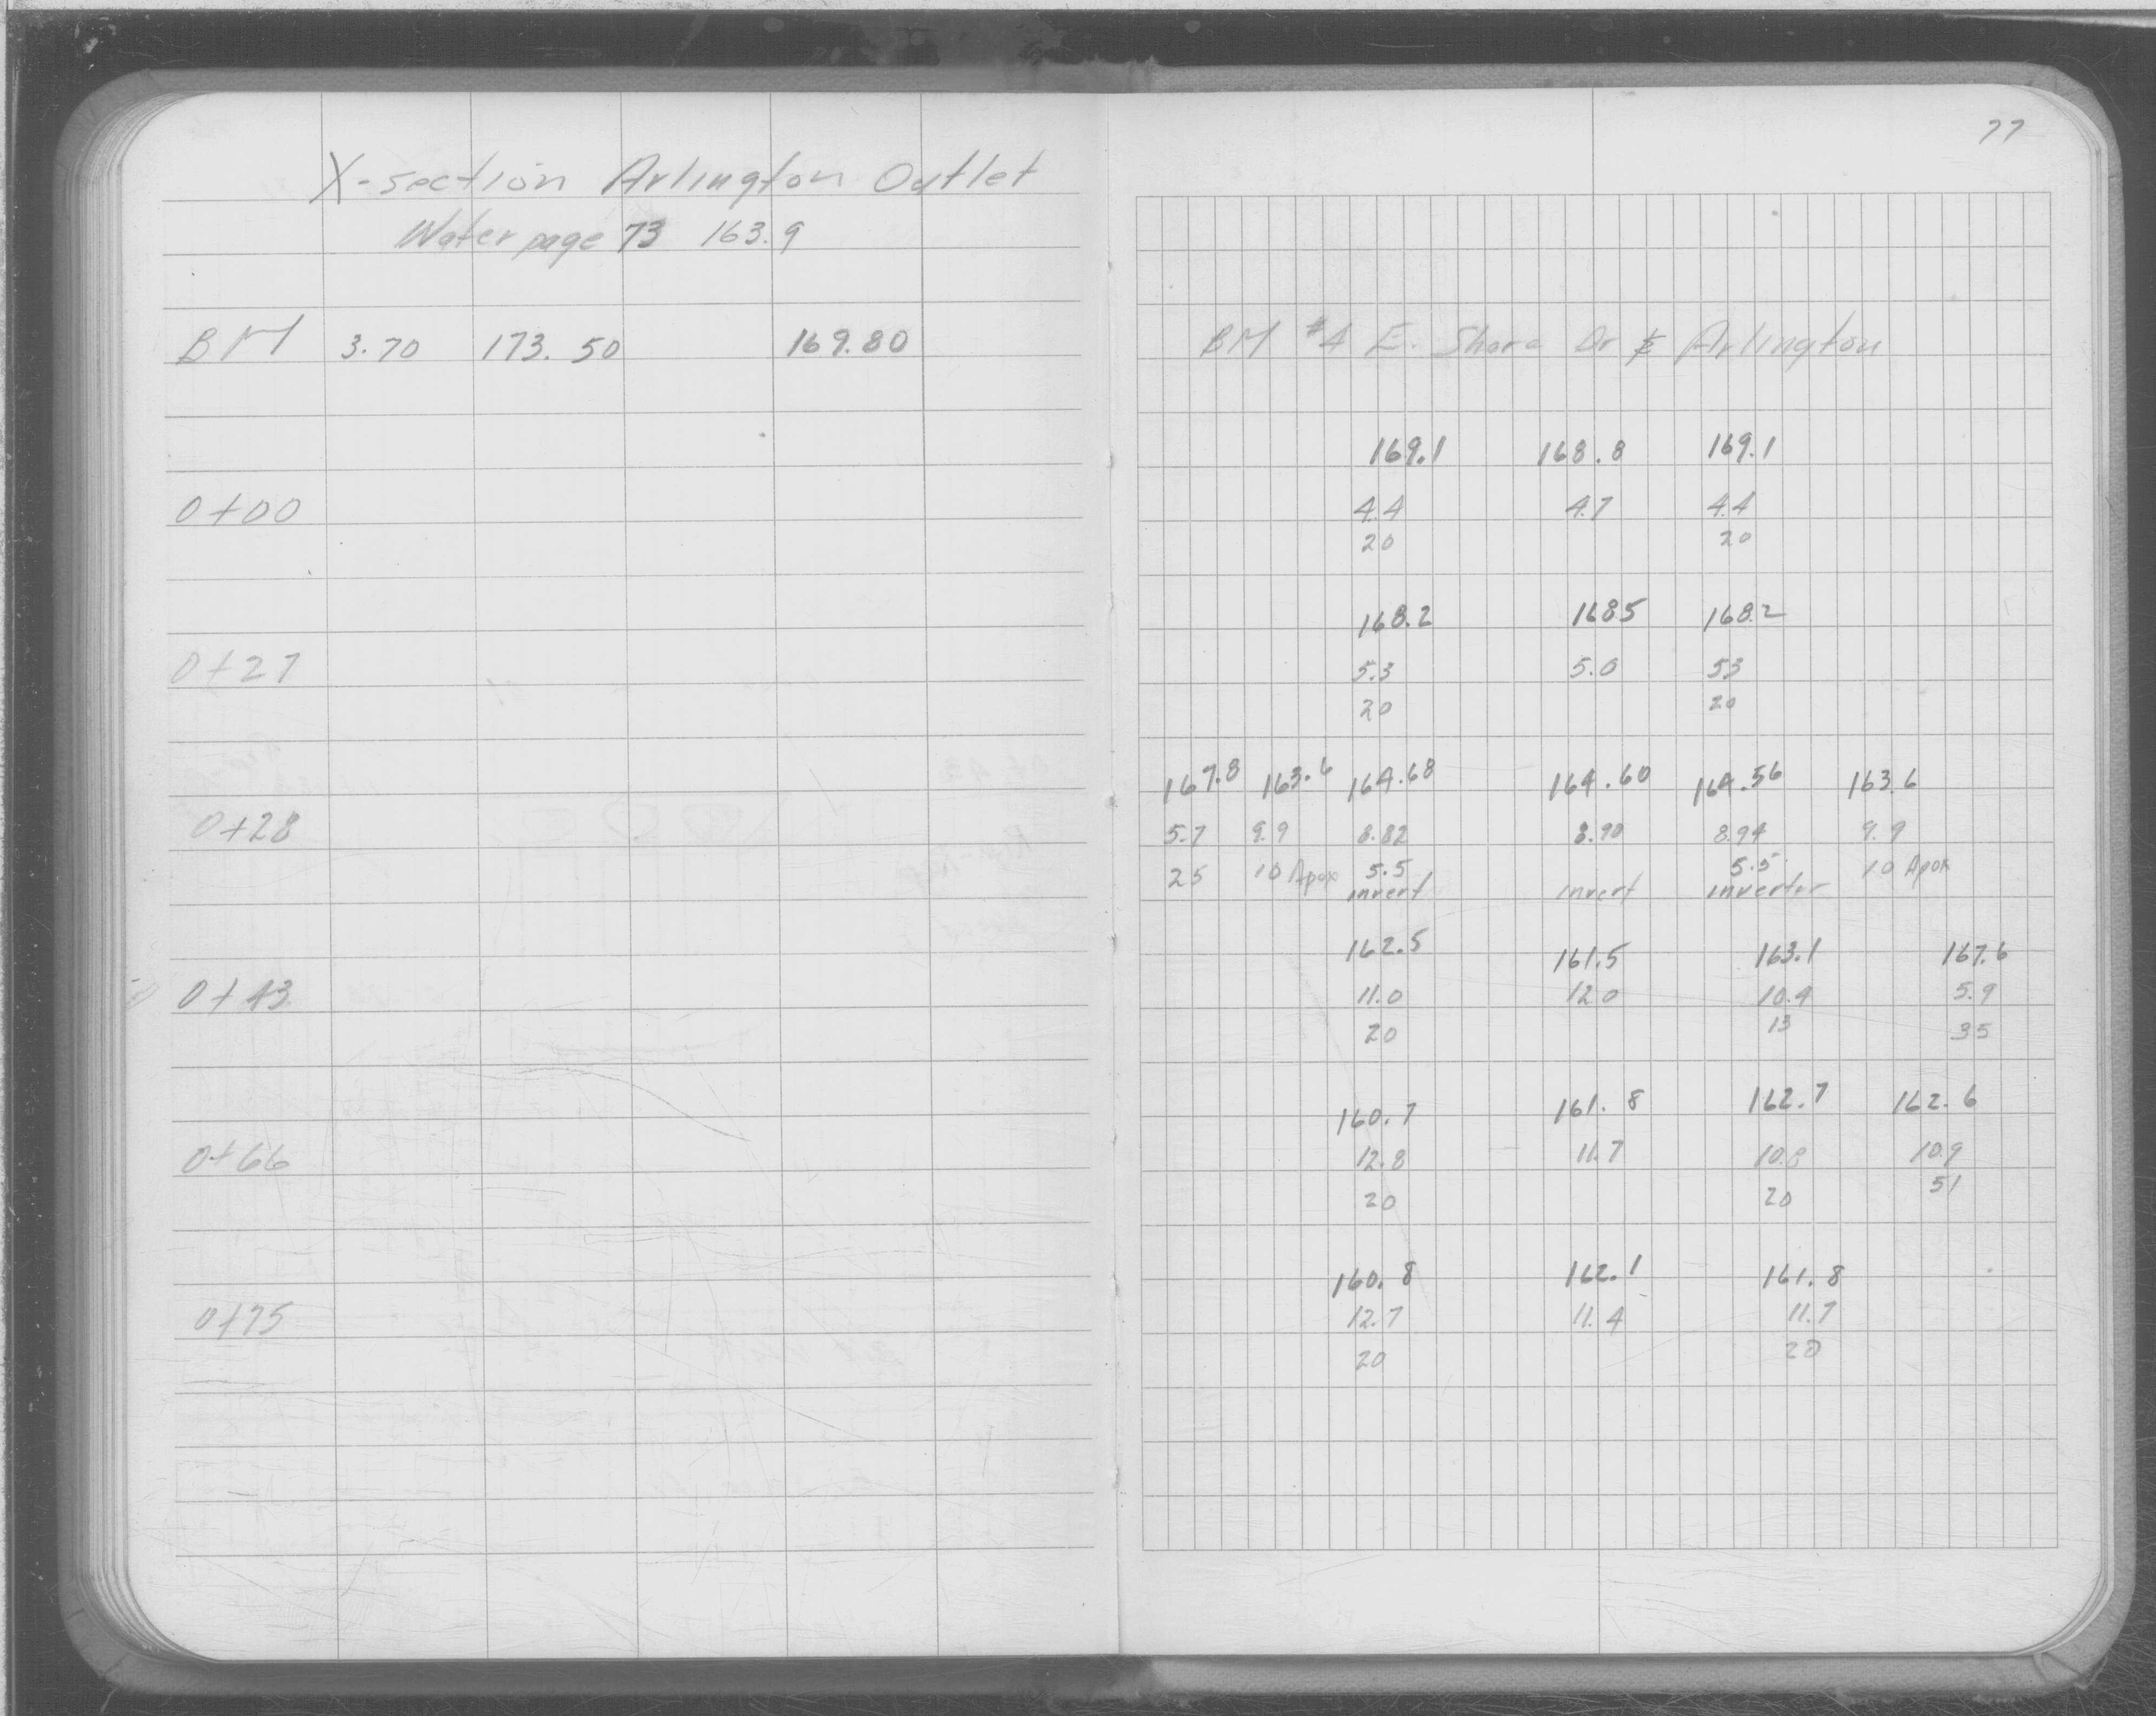 X-section Arlington Outlet
Water page 73 163.9
BM 3.70 173.50 169.80
0+00
0+27
0+28
0+43
0+66
0+75
77
BM #4 E. Shore Dr & Arlington
169.1 168.8 169.1
4.4 4.7 4.4
20 20
168.2 168.5 168.2
5.3 5.0 5.3
20 20
167.8 163.6 164.68 164.60 164.56 163.6
5.7 9.9 8.82 8.90 8.94 9.9
25 10 Apox 5.5 5.5 10 Apox
invert invert inverter
162.5 161.5 163.1 167.6
11.0 12.0 10.4 5.9
20 13 35
160.7 161.8 162.7 162.6
12.8 11.7 10.8 10.9
20 20 51
160.8 162.1 161.8
12.7 11.4 11.7
20 20